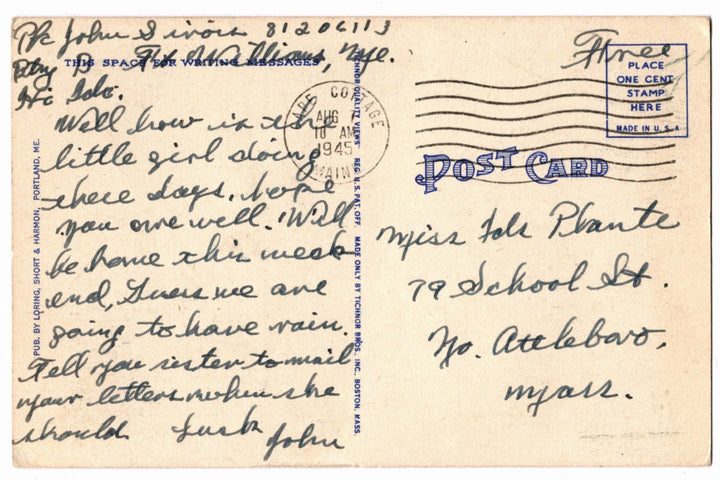 Pfc John Sivois 81206113
Btry D Ft. Williams, Me.
THIS SPACE FOR WRITING MESSAGES
Hi Ida.
Well how is the
little girl doing
these days, hope
you are well. Will
be home this week
end, Guess we are
going to have rain.
Tell you sister to mail
your letters when she
should Luck
John
PUB. BY LORING, SHORT & HARMON, PORTLAND, ME.
TICHNOR QUALITY VIEWS REG. U.S. PAT. OFF. MADE ONLY BY TICHNOR BROS., INC., BOSTON, MASS.
CAPE COTTAGE
AUG 7
10 AM
1945
MAINE
Free
PLACE
ONE CENT
STAMP
HERE
MADE IN U.S.A
POST CARD
Miss Ida Plante
79 School St.
No. Attleboro,
Mass.